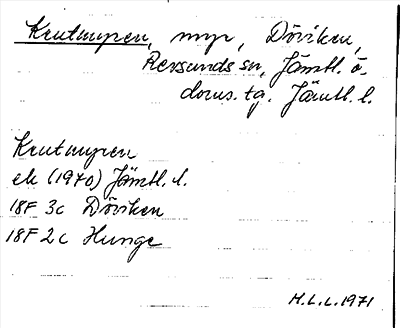 Krutmyren, myr, Döviken,
Revsunds sn, Jämtl. ö.
doms. tg. Jämtl. l.
Krutmyren
ek (1970) Jämtl. l.
18F 3c Döviken
18F 2c Hunge
H.L.L. 1971